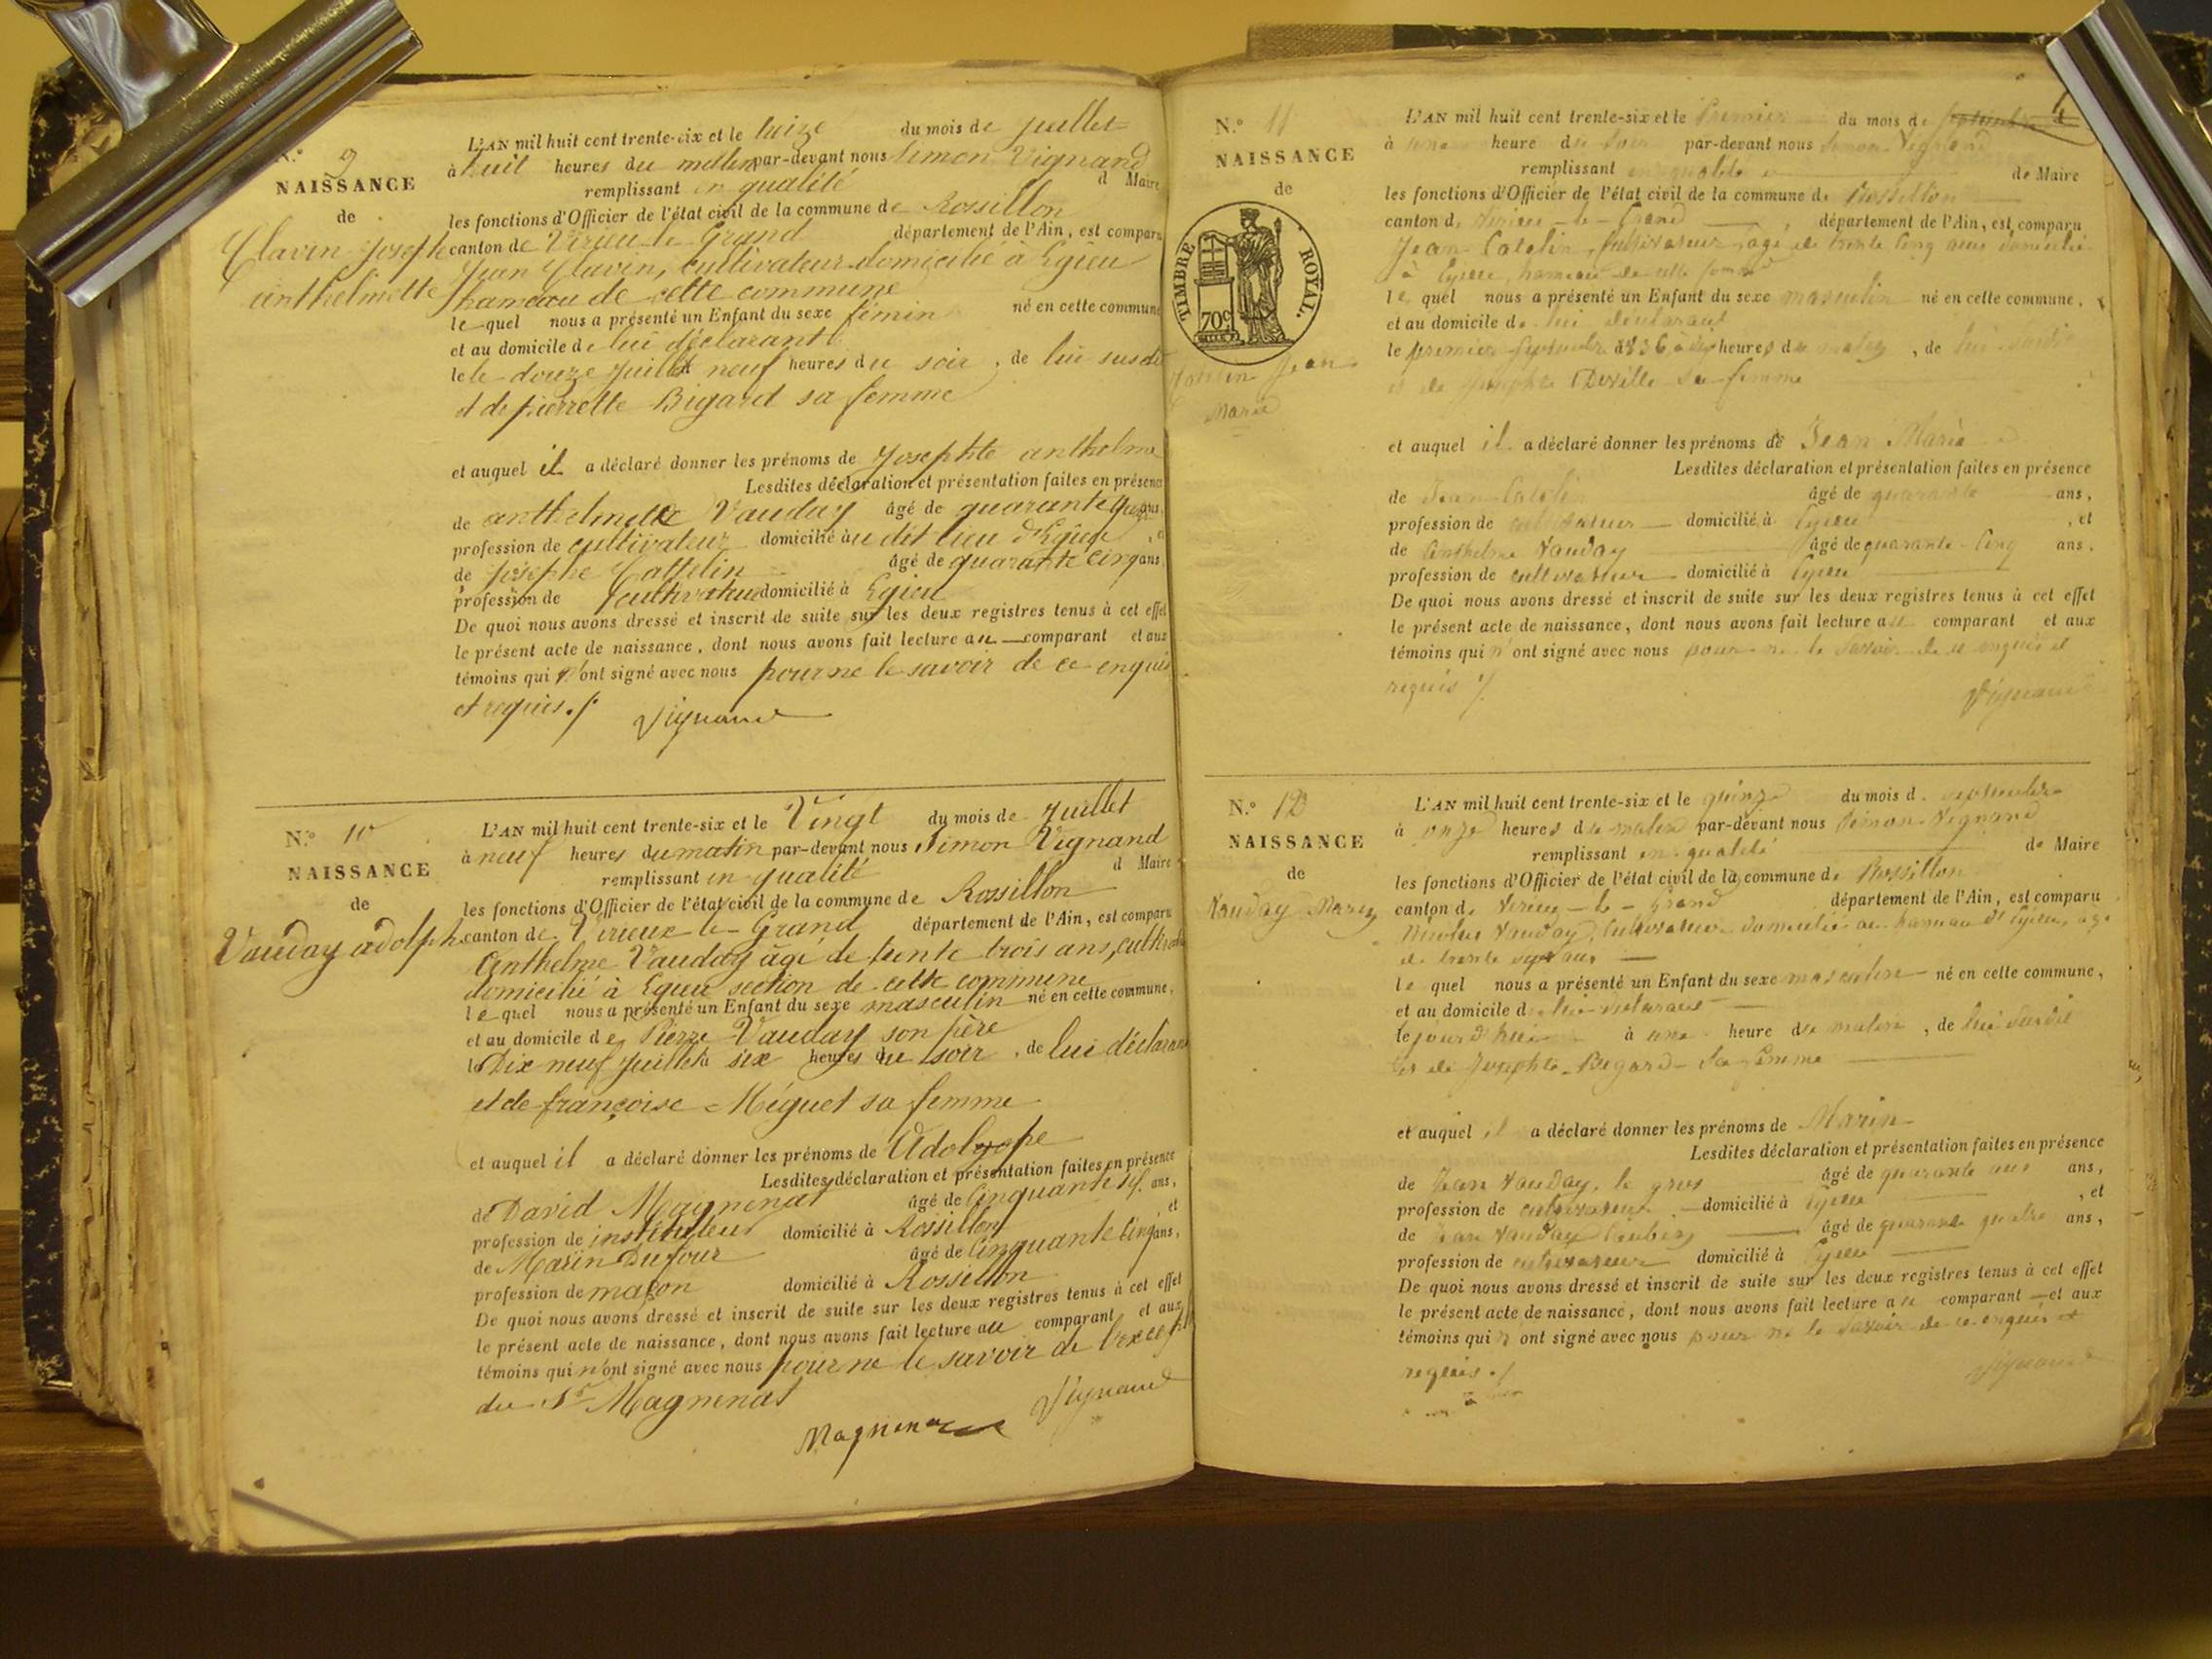 N.º 9
NAISSANCE
de
Clavin Josephte
anthelmette
L'AN mil huit cent trente-six et le treize du mois de juillet
à huit heures du matin par-devant nous Simon Vignand
remplissant en qualité d Maire
les fonctions d'Officier de l'état civil de la commune de Rossillon
canton de Virieu le Grand département de l'Ain, est comparu
Jean Clavin, cultivateur domicilié à Egieu
hameau de cette commune
le quel nous a présenté un Enfant du sexe féminin né en cette commune
et au domicile de lui déclarant
le le douze juillet neuf heures du soir, de lui susdit
et de pierrette Bigard sa femme
et auquel il a déclaré donner les prénoms de Josephte anthelme
Lesdites déclaration et présentation faites en présence
de anthelmette Vauday âgé de quarante ans,
profession de cultivateur domicilié au dit lieu d'Egieu, et
de Josephe Cattelin âgé de quarante cinq ans,
profession de cultivateur domicilié à Egieu
De quoi nous avons dressé et inscrit de suite sur les deux registres tenus à cet effet
le présent acte de naissance, dont nous avons fait lecture au comparant et aux
témoins qui n'ont signé avec nous pour ne le savoir de ce enquis
et requis ./.
Vignand
N.º 10
NAISSANCE
de
Vauday adolphe
L'AN mil huit cent trente-six et le Vingt du mois de Juillet
à neuf heures du matin par-devant nous Simon Vignand
remplissant en qualité d Maire
les fonctions d'Officier de l'état civil de la commune de Rossillon
canton de Virieux le Grand département de l'Ain, est comparu
Anthelme Vauday âgé de trente trois ans, cultivateur
domicilié à Egieu section de cette commune
le quel nous a présenté un Enfant du sexe masculin né en cette commune,
et au domicile de Pierre Vauday son père
le Dix neuf juillet à six heures du soir, de lui déclarant
et de françoise Miguet sa femme
et auquel il a déclaré donner les prénoms de Adolphe
Lesdites déclaration et présentation faites en présence
de David Magnenat âgé de Cinquante ans,
profession de instituteur domicilié à Rossillon et
de Marin Dufour âgé de Cinquante Cinq ans,
profession de maçon domicilié à Rossillon
De quoi nous avons dressé et inscrit de suite sur les deux registres tenus à cet effet
le présent acte de naissance, dont nous avons fait lecture au comparant et aux
témoins qui n'ont signé avec nous pour ne le savoir de l'exception
du Sr Magnenat
Magnenat Vignand
N.º 11
NAISSANCE
de
TIMBRE ROYAL.
70c
Catelin Jean
Marie
L'AN mil huit cent trente-six et le Premier du mois de septembre
à une heure du soir par-devant nous Simon Vignand
remplissant en qualité de Maire
les fonctions d'Officier de l'état civil de la commune de Rossillon
canton de Virieu-le-Grand département de l'Ain, est comparu
Jean Catelin, Cultivateur, agé de trente Cinq ans domicilié
à Egieu, hameau de cette commune
le quel nous a présenté un Enfant du sexe masculin né en cette commune,
et au domicile de lui déclarant
le premier septembre 1836 à heures du matin, de lui susdit
et de Josephte Deville sa femme
et auquel il a déclaré donner les prénoms de Jean Marie
Lesdites déclaration et présentation faites en présence
de Jean Catelin âgé de quarante ans,
profession de cultivateur domicilié à Egieu, et
de Anthelme Vauday âgé de quarante-Cinq ans,
profession de cultivateur domicilié à Egieu
De quoi nous avons dressé et inscrit de suite sur les deux registres tenus à cet effet
le présent acte de naissance, dont nous avons fait lecture au comparant et aux
témoins qui n'ont signé avec nous pour ne le savoir de ce enquis et
requis ./.
Vignand
N.º 12
NAISSANCE
de
Vauday Marin
L'AN mil huit cent trente-six et le quinze du mois d septembre
à onze heures du matin par-devant nous Simon Vignand
remplissant en qualité de Maire
les fonctions d'Officier de l'état civil de la commune de Rossillon
canton d. Virieu-le-Grand département de l'Ain, est comparu
Nicolas Vauday, Cultivateur domicilié au hameau d'Egieu, agé
de trente sept ans
le quel nous a présenté un Enfant du sexe masculin né en cette commune,
et au domicile de lui déclarant
le jourd'hui à une heure du matin, de lui susdit
et de Josephte Bigard sa femme
et auquel il a déclaré donner les prénoms de Marin
Lesdites déclaration et présentation faites en présence
de Jean Vauday, le gros âgé de quarante ans ans,
profession de cultivateur domicilié à Egieu, et
de Jean Vauday âgé de quarante quatre ans,
profession de cultivateur domicilié à Egieu
De quoi nous avons dressé et inscrit de suite sur les deux registres tenus à cet effet
le présent acte de naissance, dont nous avons fait lecture au comparant et aux
témoins qui n ont signé avec nous pour ne le savoir de ce enquis et
requis ./.
Vignand